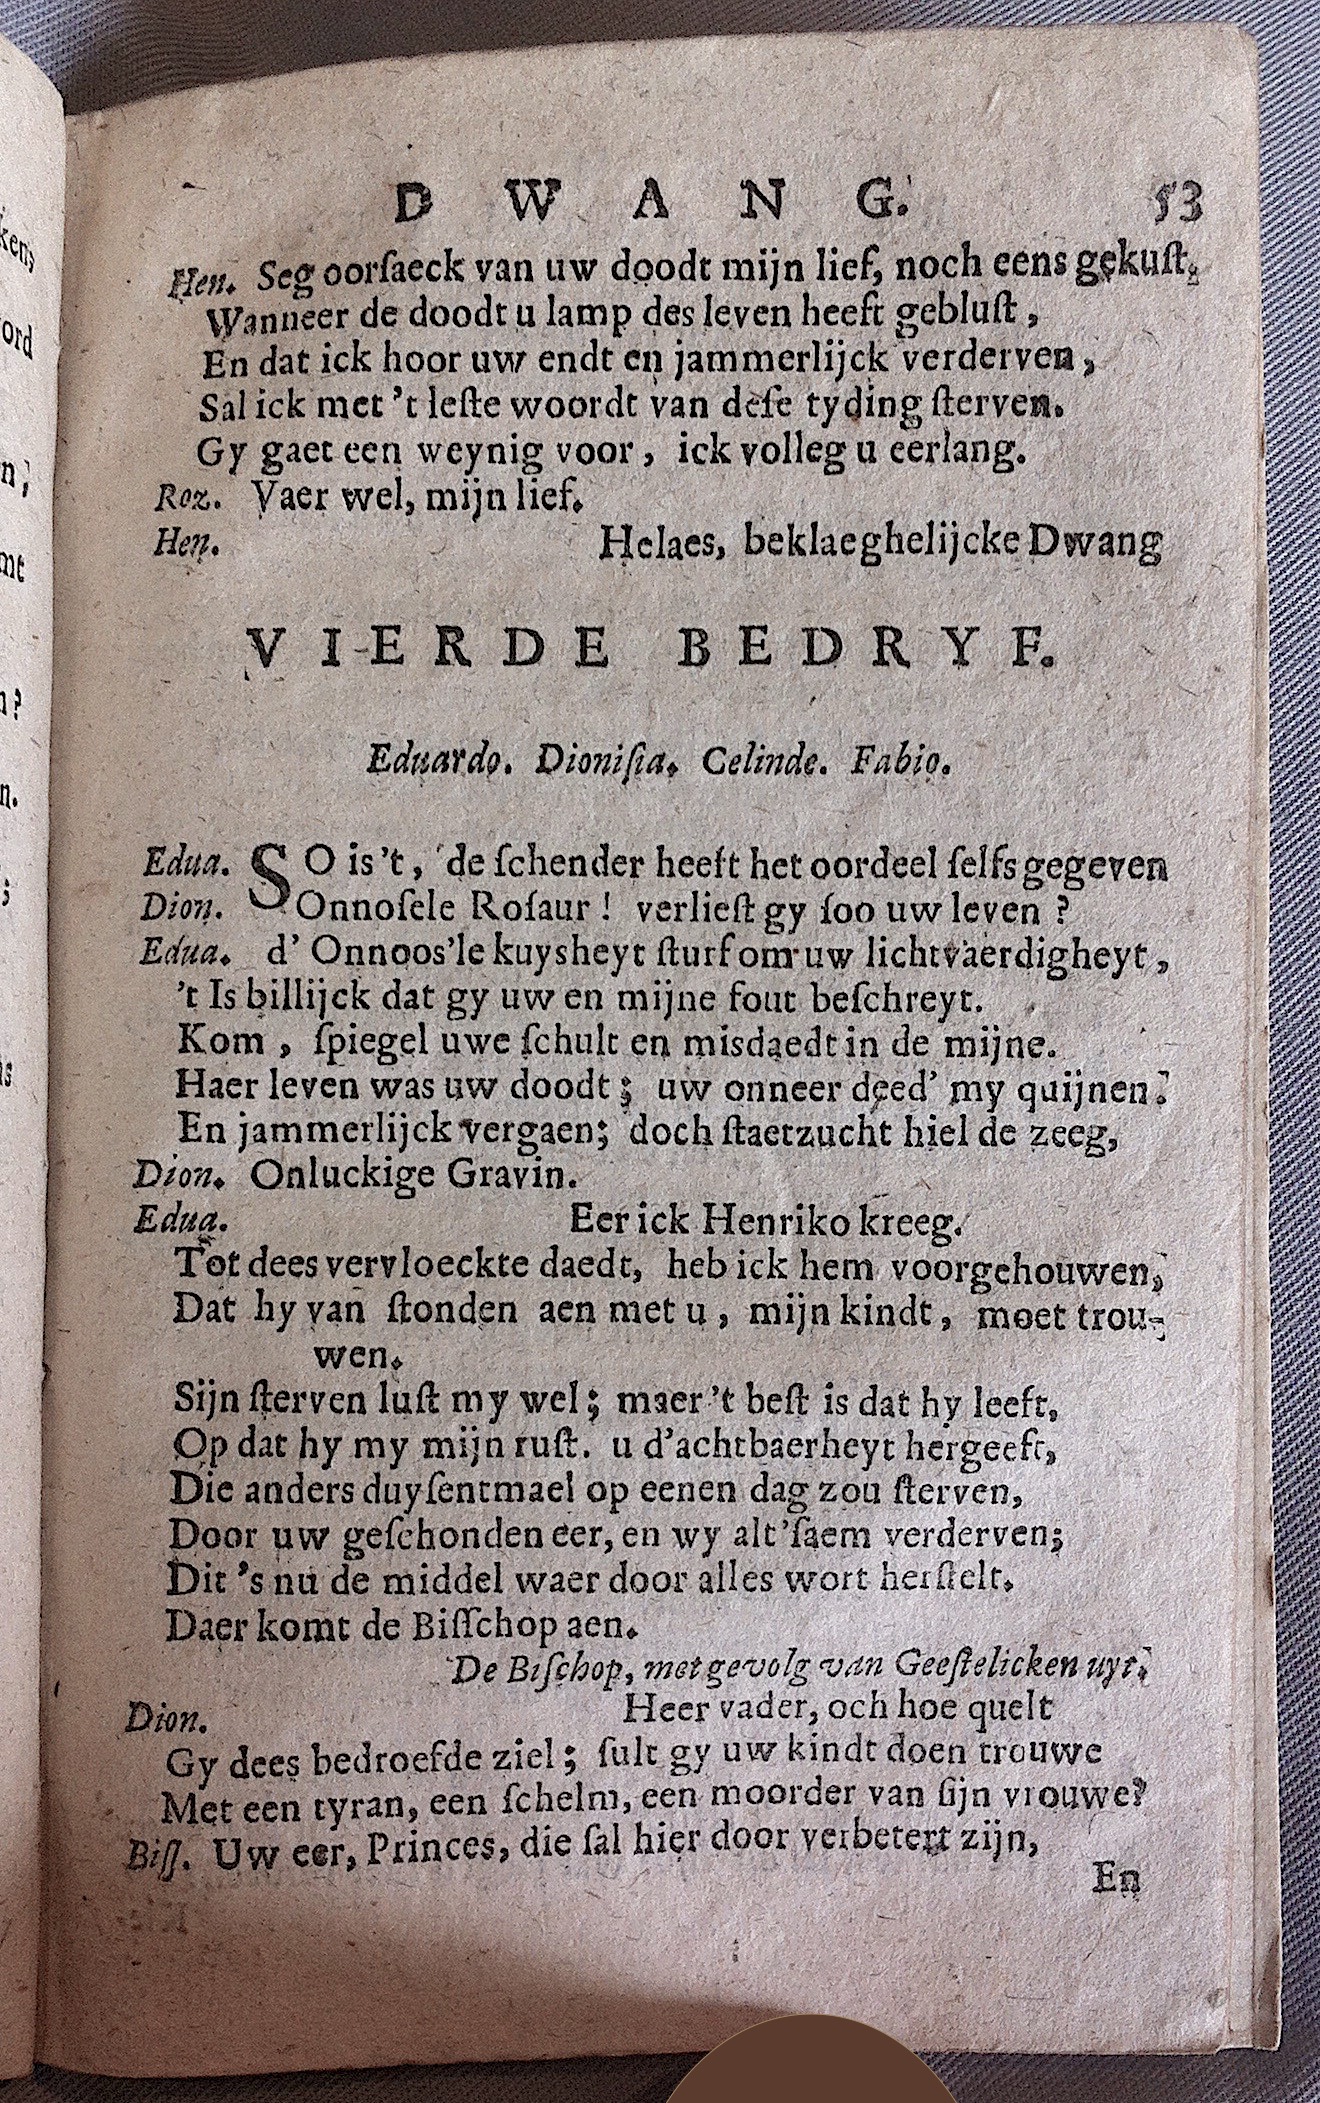 D W A N G. 53
Hen. Seg oorſaeck van uw doodt mijn lief, noch eens gekuſt,
Wanneer de doodt u lamp des leven heeft gebluſt,
En dat ick hoor uw endt en jammerlijck verderven,
Sal ick met 't leſte woordt van deſe tyding ſterven.
Gy gaet een weynig voor, ick volleg u eerlang.
Roz. Vaer wel, mijn lief.
Hen. Helaes, beklaeghelijcke Dwang
VIERDE BEDRYF.
Eduardo. Dioniſia. Celinde. Fabio.
Edua. SO is 't, de ſchender heeft het oordeel ſelfs gegeven
Dion. Onnoſele Roſaur! verlieſt gy ſoo uw leven?
Edua. d' Onnoos'le kuysheyt ſturf om uw lichtvaerdigheyt,
't Is billijck dat gy uw en mijne fout beſchreyt.
Kom, ſpiegel uwe ſchult en misdaedt in de mijne.
Haer leven was uw doodt; uw onneer deed' my quijnen.
En jammerlijck vergaen; doch ſtaetzucht hiel de zeeg,
Dion. Onluckige Gravin.
Edua. Eer ick Henriko kreeg.
Tot dees vervloeckte daedt, heb ick hem voorgehouwen,
Dat hy van ſtonden aen met u, mijn kindt, moet trou-
wen.
Sijn ſterven luſt my wel; maer 't beſt is dat hy leeft,
Op dat hy my mijn ruſt. u d'achtbaerheyt hergeeft,
Die anders duyſentmael op eenen dag zou ſterven,
Door uw geſchonden eer, en wy alt'ſaem verderven;
Dit 's nu de middel waer door alles wort herſtelt.
Daer komt de Biſſchop aen.
De Biſchop, met gevolg van Geeſtelicken uyt.
Dion. Heer vader, och hoe quelt
Gy dees bedroefde ziel; ſult gy uw kindt doen trouwe
Met een tyran, een ſchelm, een moorder van ſijn vrouwe?
Biſſ. Uw eer, Princes, die ſal hier door verbetert zijn,
En